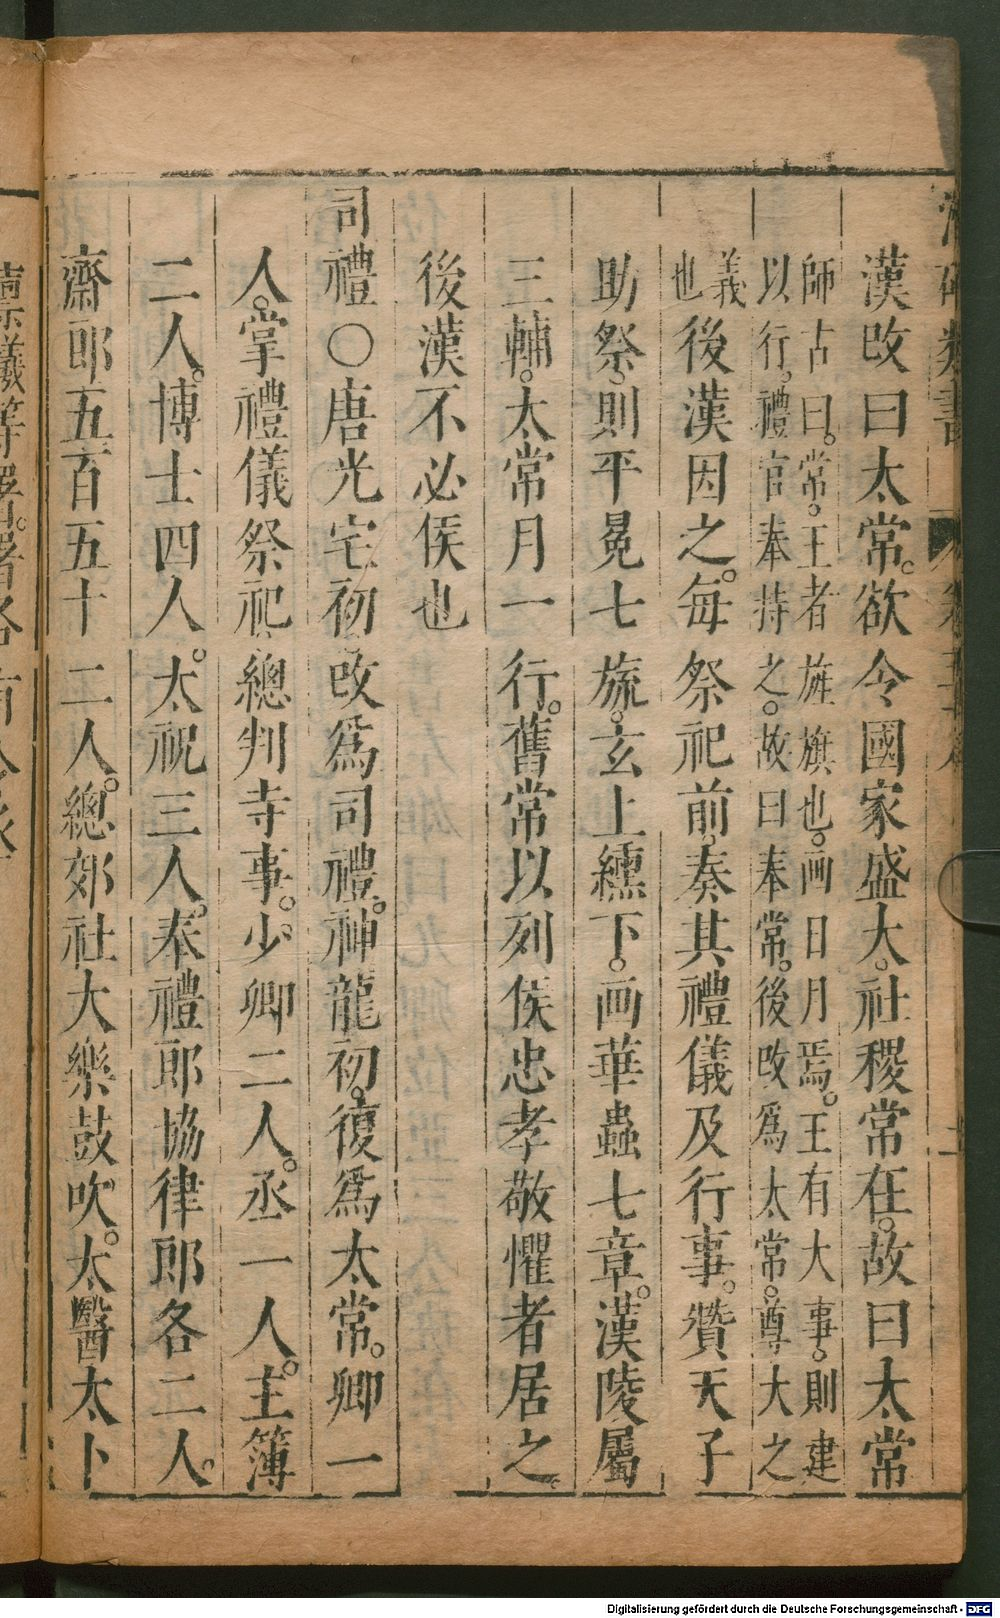 漢改曰太常。欲令國家盛大。社稷常在。故曰太常
師古曰。常。王者旌旗也。画日月焉。王有大事。則建
以行。禮官奉持之。故曰奉常。後改爲太常。尊大之
義
也
後漢因之。每祭祀前。奏其禮儀及行事。贊天子
助祭。則平冕七旒。玄上纁下。画華蟲七章。漢陵屬
三輔。太常月一行。舊常以列侯忠孝敬懼者居之。
後漢不必侯也
司禮〇唐光宅初改爲司禮。神龍初。復爲太常。卿一
人。掌禮儀祭祀。總判寺事。少卿二人。丞一人。主簿
二人。博士四人。太祝三人。奉禮郎協律郎各二人。
齋郎五百五十二人。總郊社大樂鼓吹。太醫太卜
Digitalisierung gefördert durch die Deutsche Forschungsgemeinschaft - DFG